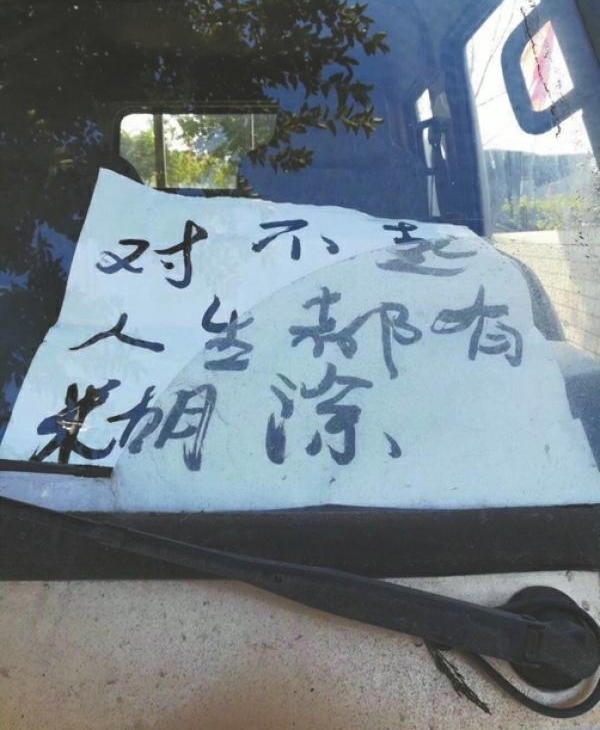 对不起
人生都有
糊涂、